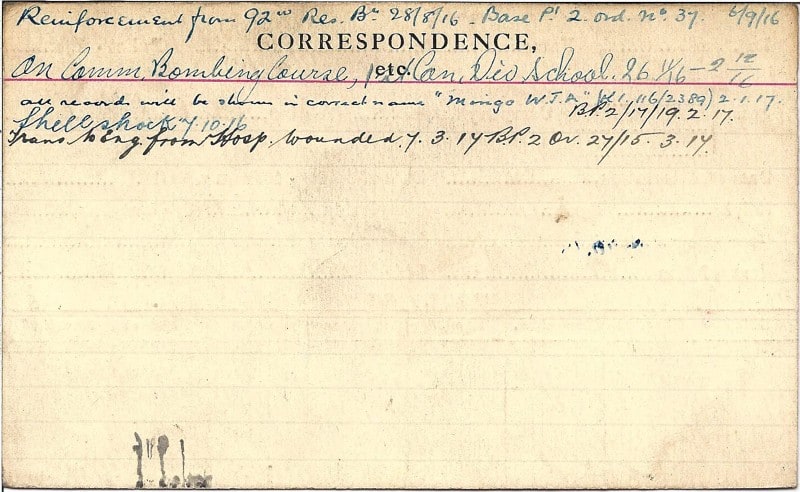 Reinforcement from 92nd Res. Bn 28/8/16 - Base Pt 2. ord. No. 37. 6/9/16
CORRESPONDENCE,
etc.
On Comm. Bombing Course, 1st Can. Div School. 26 11/16 - 2 12/16
all records will be shown in correct name "Mingo W.J.A" (K1.116/2389) 2.1.17.
B.P.2/17/19.2.17.
Shell shock 7.10.16
Trans to Eng. from Hosp. wounded. 7.3.17 B.P. 2 Or. 27/15.3.17.